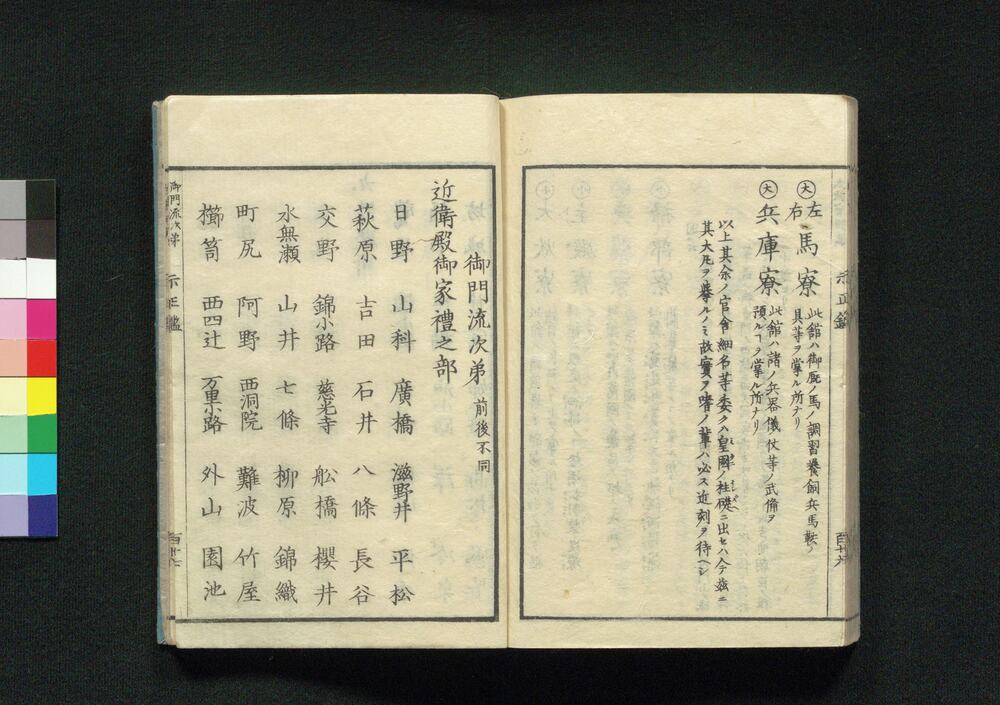 大 左右馬寮 此舘ハ御厩ノ馬ノ調習養飼兵馬鞍ノ
具等ヲ掌ル所ナリ
大 兵庫寮 此舘ハ諸ノ兵器儀仗等ノ武備ヲ
預ルヿヲ掌ル所ナリ
以上其余ノ官舎細名等委クハ皇國ノ柱礎ニ出セハ入テ茲ニ
其大凡ヲ挙ルノミ故實ヲ嗜ノ輩ハ必ス近刻ヲ待ヘシ
示正鑑
百十六
御門流次弟 前後不同
近衛殿御家禮之部
日野 山科 廣橋 滋野井 平松
萩原 吉田 石井 八條 長谷
交野 錦小路 慈光寺 舩橋 櫻井
水無瀬 山井 七條 柳原 錦織
町尻 阿野 西洞院 難波 竹屋
櫛笥 西四辻 万里小路 外山 園池
御門流次弟
示正鑑
百十七